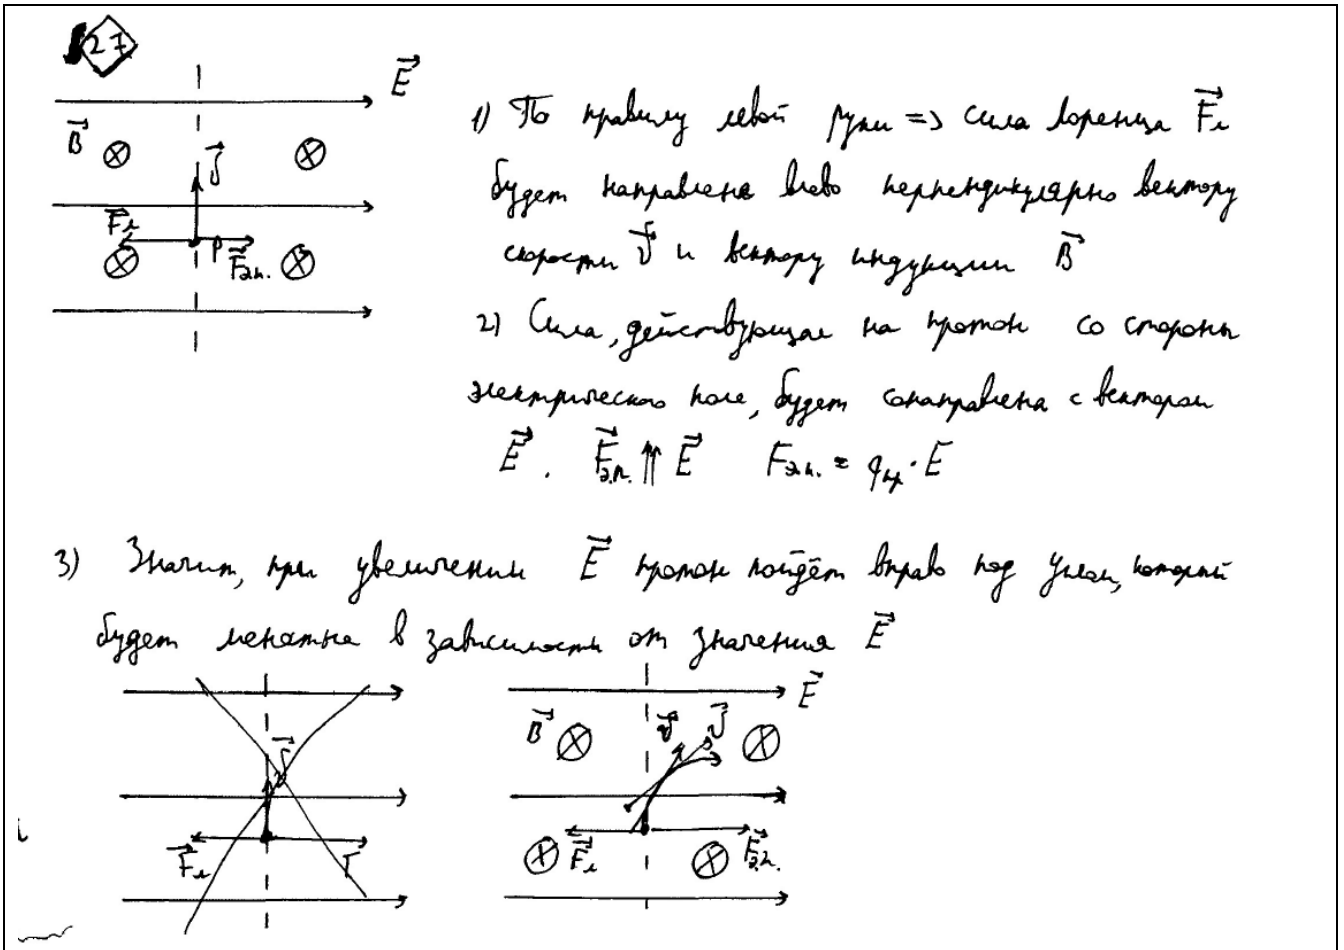 27
E
B
v
Fл
p
Fэ.п.
1) По правилу левой руки => сила Лоренца Fл
будет направлена влево перпендикулярно вектору
скорости v и вектору индукции B
2) Сила, действующая на протон со стороны
электрического поле, будет сонаправлена с вектором
E. Fэ.п. ↑↑ E Fэ.п. = qпр · E
3) Значит, при увеличении E протон пойдёт вправо под углом, который
будет меняться в зависимости от значения E
v
Fл
F
E
B
v v
Fл
Fэ.п.